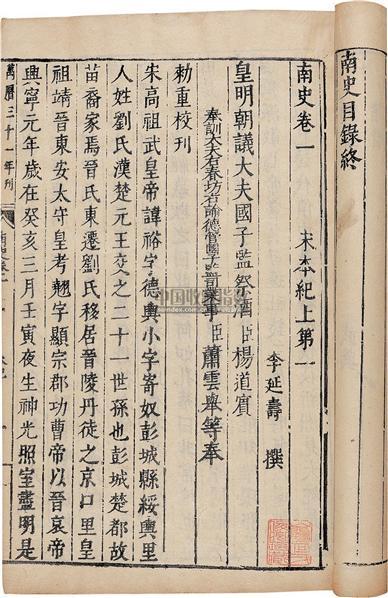 南史目錄終
南史卷一　宋本紀上第一
李延壽　撰
皇明朝議大夫國子監祭酒臣楊道賓
奉訓大夫右春坊右諭德管國子監司業事臣蕭雲舉等奉
勑重校刊
宋高祖武皇帝諱裕字德輿小字寄奴彭城縣綏輿里
人姓劉氏漢楚元王交之二十一世孫也彭城楚都故
苗裔家焉晉氏東遷劉氏移居晉陵丹徒之京口里皇
祖靖晉東安太守皇考翹字顯宗郡功曹帝以晉哀帝
興寧元年歲在癸亥三月壬寅夜生神光照室盡明是
萬曆三十一年刊